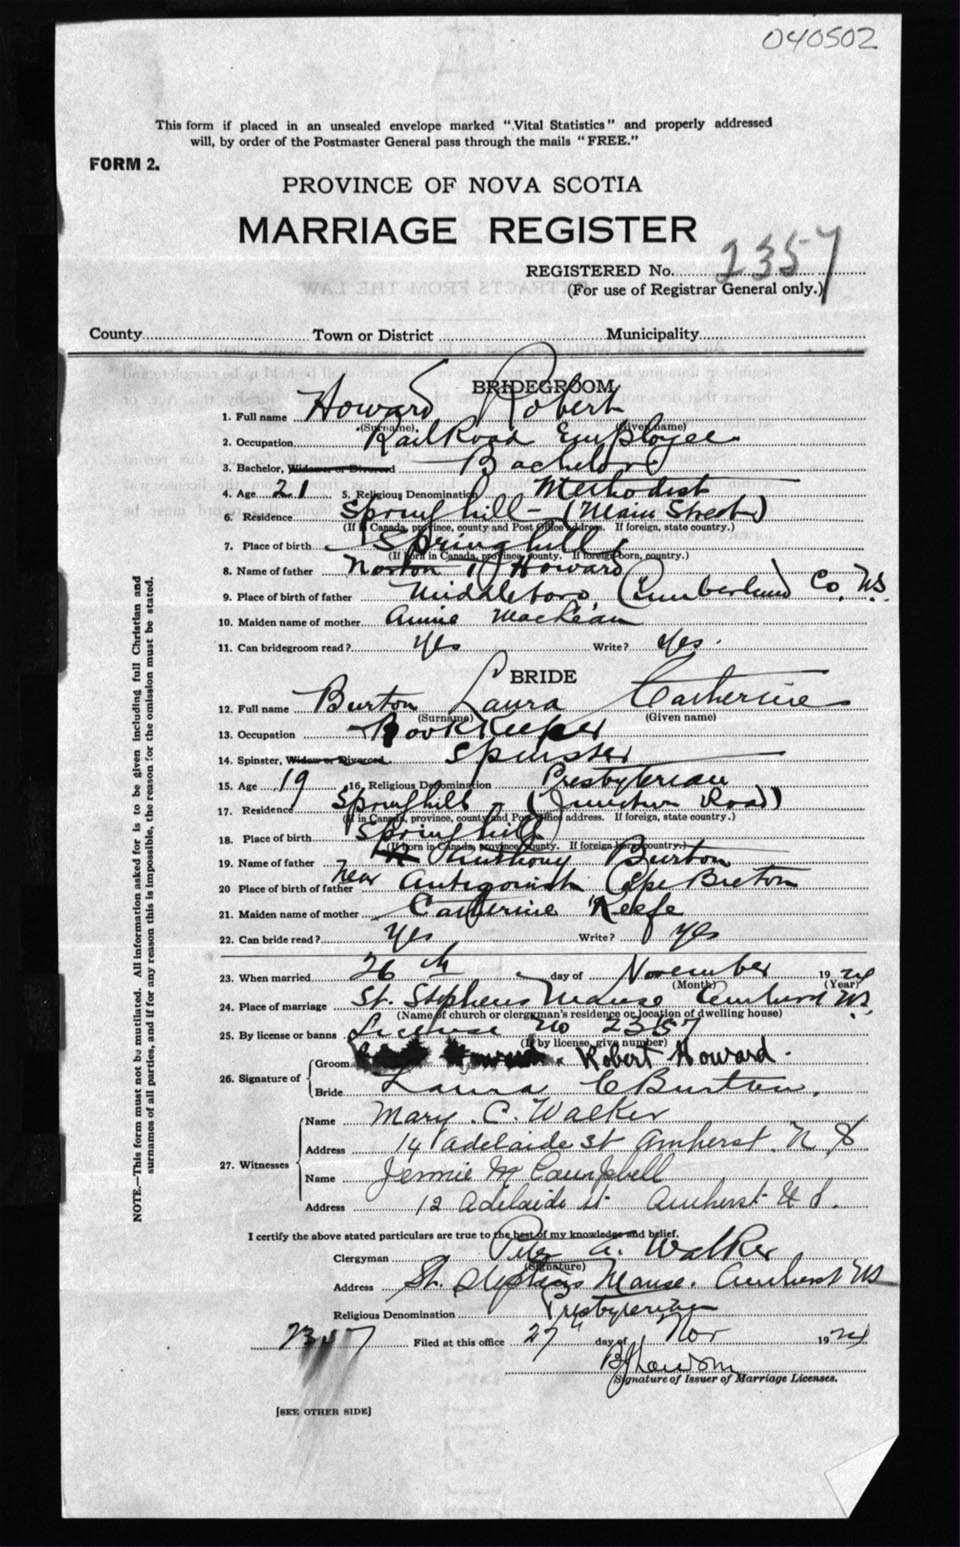 040502
This form if placed in an unsealed envelope marked "Vital Statistics" and properly addressed
will, by order of the Postmaster General pass through the mails "FREE."
FORM 2.
PROVINCE OF NOVA SCOTIA
MARRIAGE REGISTER
REGISTERED No. 2357
(For use of Registrar General only.)
County Town or District Municipality
BRIDEGROOM
1. Full name Howard Robert
(Surname) (Given name)
2. Occupation Rail Road Employee
3. Bachelor, Widower or Divorced Bachelor
4. Age 21 5. Religious Denomination Methodist
6. Residence Springhill - (Main Street)
(If in Canada, province, county and Post Office address. If foreign, state country.)
7. Place of birth Springhill
(If born in Canada, province, county. If foreign born, country.)
8. Name of father Norton Howard
9. Place of birth of father Middleboro, (Cumberland Co. N.S.
10. Maiden name of mother Annie MacLean
11. Can bridegroom read? Yes Write? Yes.
BRIDE
12. Full name Burton Laura Catherine
(Surname) (Given name)
13. Occupation Book Keeper
14. Spinster, Widow or Divorced Spinster
15. Age 19 16. Religious Denomination Presbyterian
17. Residence Springhill - (Junction Road)
(If in Canada, province, county and Post Office address. If foreign, state country.)
18. Place of birth Springhill
(If born in Canada, province, county. If foreign born, country.)
19. Name of father Anthony Burton
20 Place of birth of father near Antigonish Cape Breton
21. Maiden name of mother Catherine Keefe
22. Can bride read? Yes Write? yes
23. When married 26th day of November 1924
(Month) (Year)
24. Place of marriage St. Stephens Manse Amherst N.S.
(Name of church or clergyman's residence or location of dwelling house)
25. By license or banns License no 2357
(If by license, give number)
26. Signature of
Groom Robert Howard.
Bride Laura C Burton.
27. Witnesses
Name Mary. C. Walker
Address 14 Adelaide St Amherst. N S
Name Jennie M Campbell
Address 12 Adelaide St Amherst N S.
I certify the above stated particulars are true to the best of my knowledge and belief.
Clergyman Peter A. Walker
(Signature)
Address St. Stephens Manse. Amherst NS
Religious Denomination Presbyterian
2357 Filed at this office 27" day of Nov 1924
Signature of Issuer of Marriage Licenses.
[SEE OTHER SIDE]
NOTE.—This form must not be mutilated. All information asked for is to be given including full Christian and
surnames of all parties, and if for any reason this is impossible, the reason for the omission must be stated.